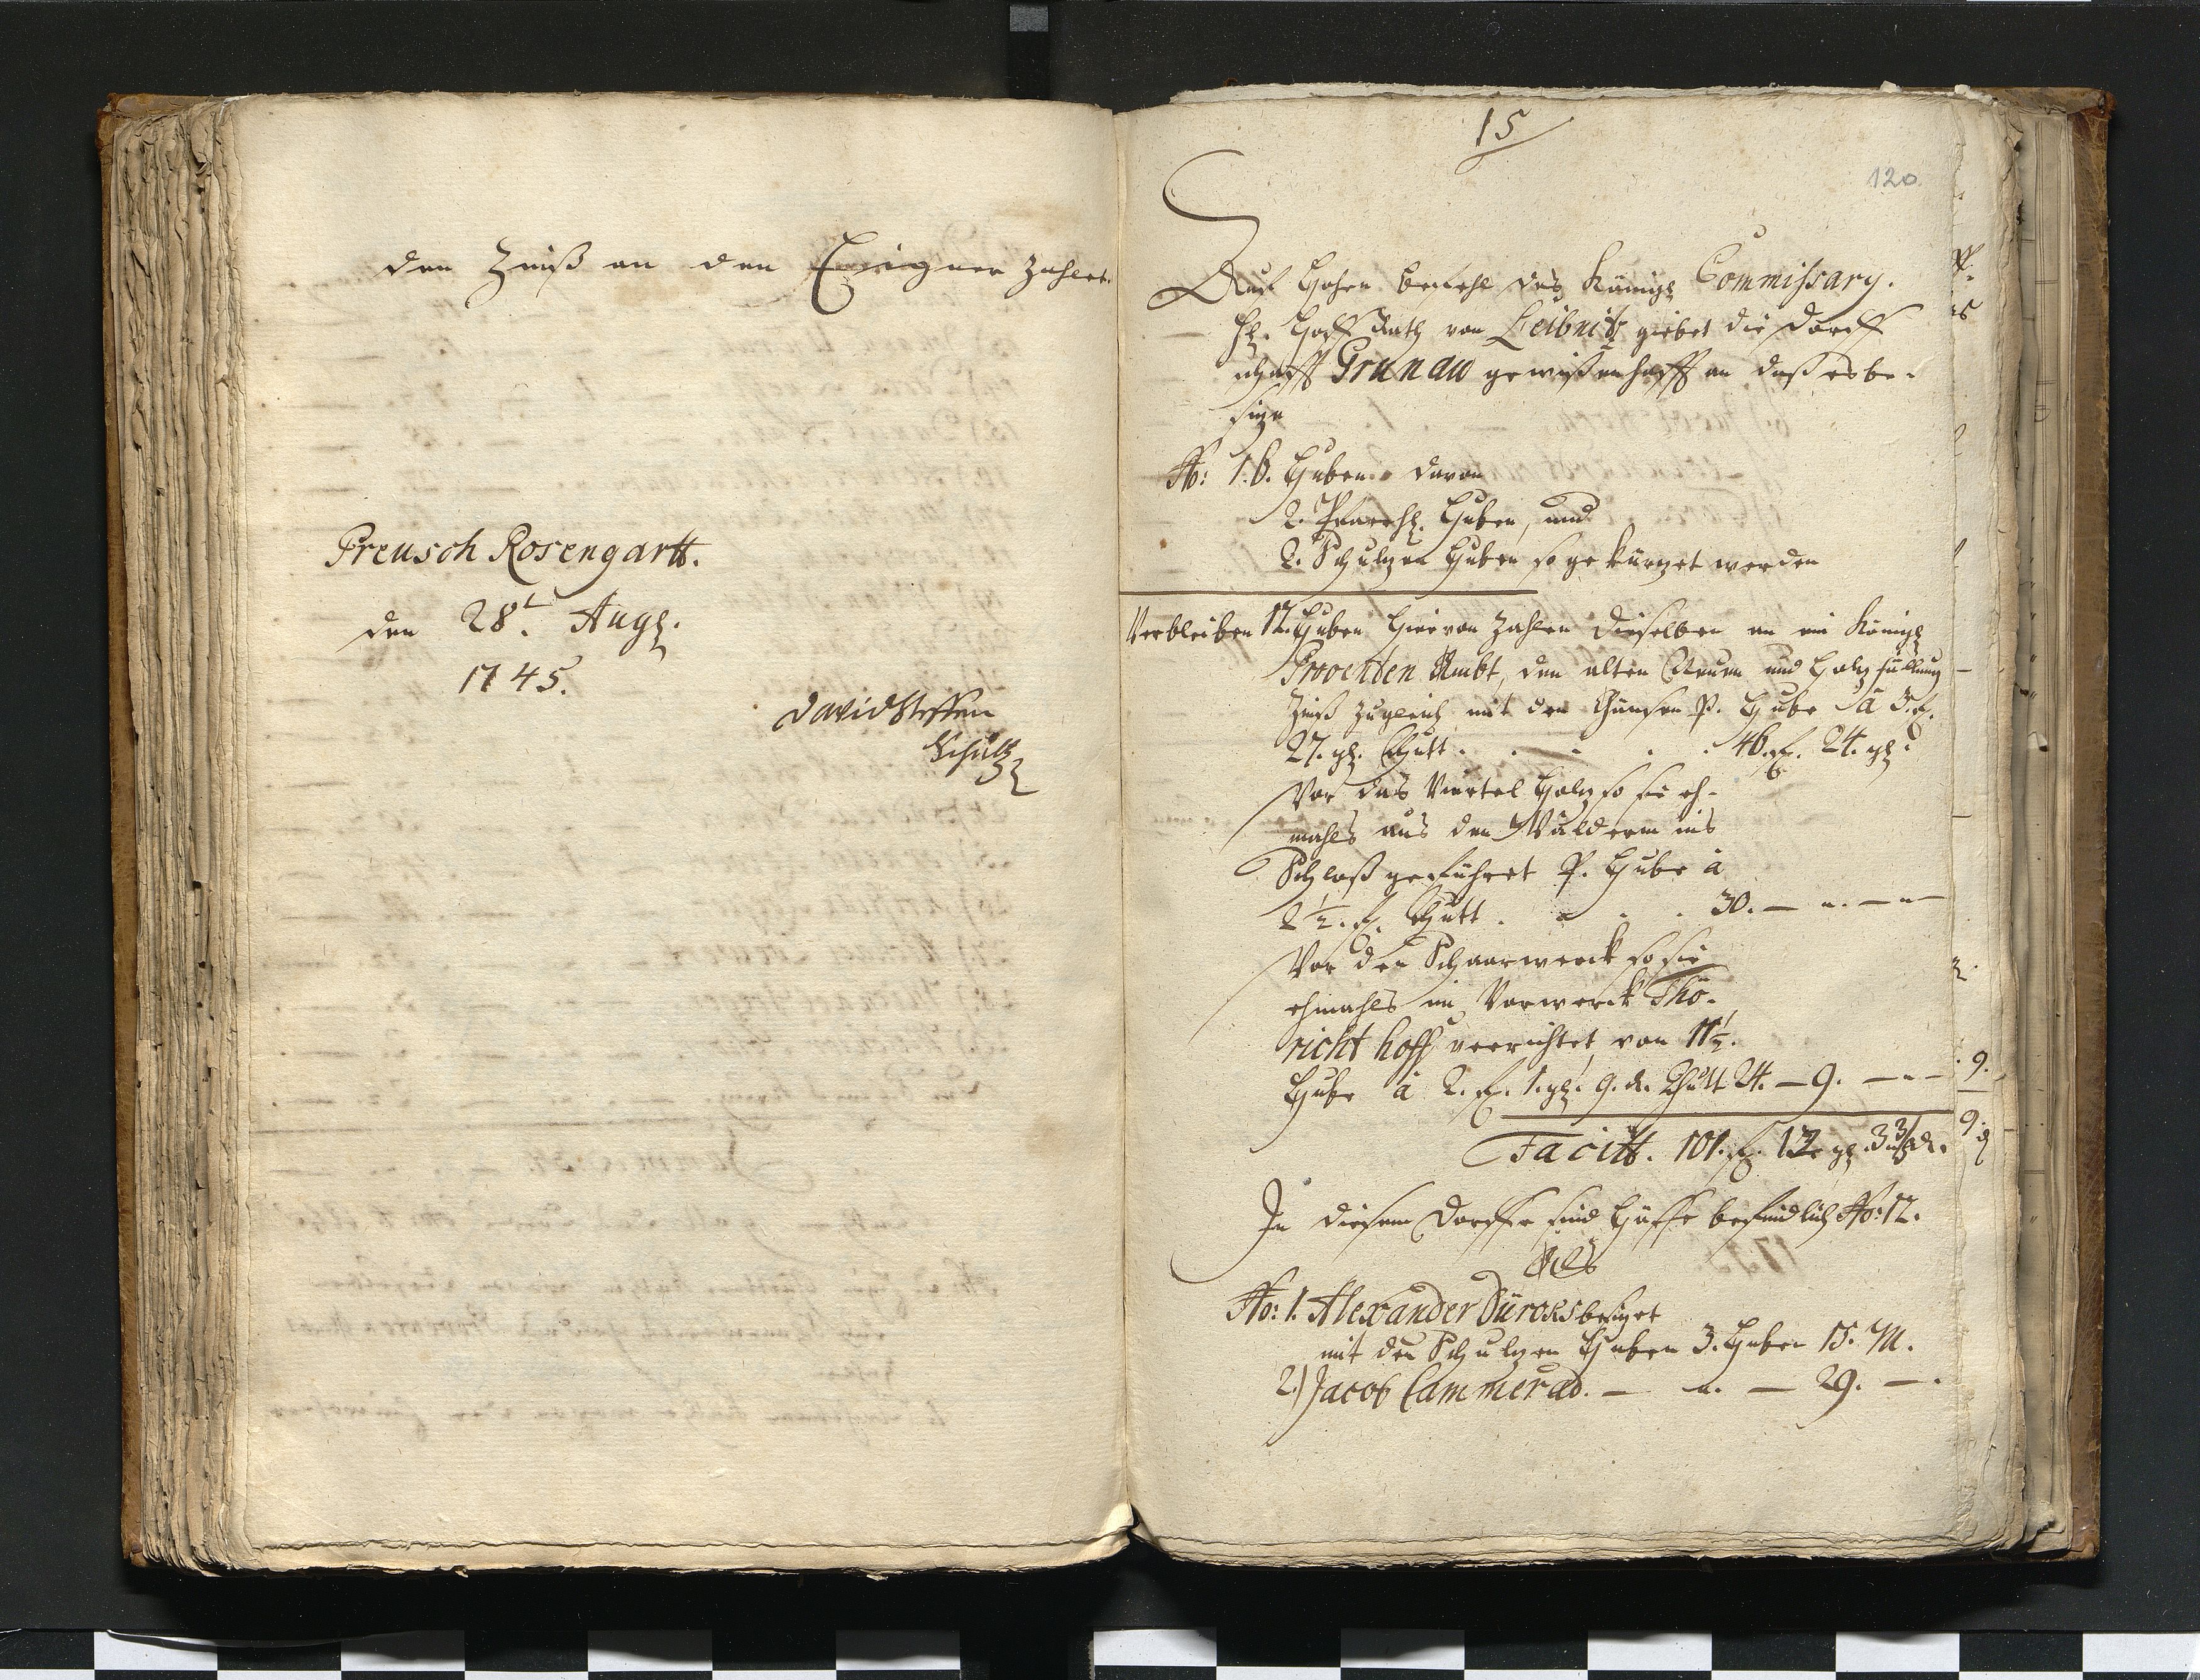 den Zinß an den Eÿigner Zahlet.
Preusch Rosengartt.
den 28t. Augs.
1745.
David Steffen
Schultz
15
120.
Auf Hohen befehl des Königl Commissary.
HE. Hoff Rath von Leibnitz giebet die Dorff
schafft Grunau gewißenhafft an daß es be-
sitze
No: 16. Huben. davon
2. Pfarrhl. Huben, und
2. Schultzen Huben so gekürtzet werden
Verbleiben 12. Huben hievon Zahlen dieselben an ein Königl
Provenden Ambt, den alten Neuen und Holtz füllung
Zinß zugleich mit den P. Hube â 3. f.
27. gl. Thutt . . . . . 46. f. 24. gl.
Vor das Viertel Holtz so sie eh-
mahls aus den Wäldern ins
Schloß geführet P. Hube â
2½. f. Thutt . . . . 30. — " — " —
Vor den Schaarwerck so sie
ehmahls im Vorwerck Thö-
richt hoff verrichtet von 11½.
Hube â 2. f. 1. gl. 9. d. Thutt 24. — 9. — " —
Facitt. 101. f. gl. d.
In diesem Dorffe sind Höffe befindlich No: 12.
Als
No: 1. Alexander Dürcks besitzet
mit den Schultzen Huben 3. Huben 15. M.
2.) Jacob Cammerad. — " — 29. — .